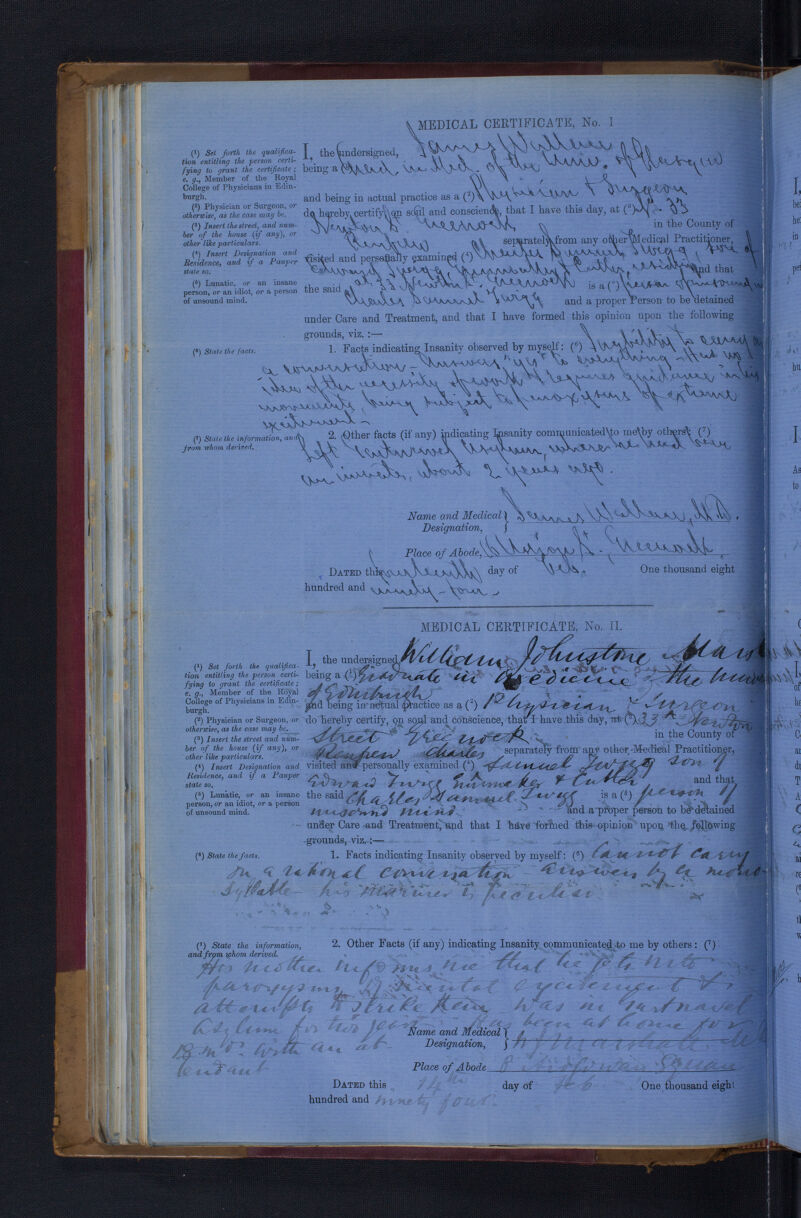 MEDICAL CERTIFICATE, No. I
(¹) Set forth the qualifica-
tion entitling the person certi-
fying to grant the certificate;
e. g., Member of the Royal
College of Physicians in Edin-
burgh.
(²) Physician or Surgeon, or
otherwise, as the case may be.
(³) Insert the street, and num-
ber of the house (if any), or
other like particulars.
(⁴) Insert Designation and
Residence, and if a Pauper
state so.
(⁵) Lunatic, or an insane
person, or an idiot, or a person
of unsound mind.
I, the undersigned, James Wallace
being a (¹) Med. of the Univ. of Glasgow
and being in actual practice as a (²) Physician & Surgeon
do hereby certify, on soul and conscience, that I have this day, at (³) 33
Newton St Greenock in the County of
Renfrew separately from any other Medical Practitioner,
visited and personally examined (⁴) Charles Samuel Twigg, son of
Edward Twigg, Gunmaker & Cutler, residing and that
at 33 Newton St Greenock
the said Charles Samuel Twigg is a (⁵) person of unsound
and a proper Person to be detained
under Care and Treatment, and that I have formed this opinion upon the following
grounds, viz. :—
(⁶) State the facts.
1. Facts indicating Insanity observed by myself: (⁶) Inability to carry
a conversation - Answers "yes" to everything - Has no
idea of the necessity of work & requires guidance in his
movements, being subject to paroxysms of extreme
excitement -
(⁷) State the information, and
from whom derived.
2. Other facts (if any) indicating Insanity communicated to me by others: (⁷)
Left Asylum, where he had been
an inmate, about 2 years ago.
Name and Medical
Designation,
James Wallace, M.D.
Place of Abode, St., Greenock
DATED this fourteenth day of Feb. One thousand eight
hundred and ninety-four
MEDICAL CERTIFICATE, No. II.
(¹) Set forth the qualifica-
tion entitling the person certi-
fying to grant the certificate;
e. g., Member of the Royal
College of Physicians in Edin-
burgh.
(²) Physician or Surgeon, or
otherwise, as the case may be.
(³) Insert the street and num-
ber of the house (if any), or
other like particulars.
(⁴) Insert Designation and
Residence, and if a Pauper
state so.
(⁵) Lunatic, or an insane
person, or an idiot, or a person
of unsound mind.
I, the undersigned William Johnstone
being a (¹) Graduate in Medicine of the
of Edinburgh
and being in actual practice as a (²) Physician & Surgeon
do hereby certify, on soul and conscience, that I have this day, at (³) 33 Newton
Street Greenock in the County of
Renfrew Charles separately from any other Medical Practitioner,
visited and personally examined (⁴) Samuel Twigg son of
Edward Twigg Gunmaker & Cutler and that
the said Charles Samuel Twigg is a (⁵) person of
unsound mind and a proper person to be detained
under Care and Treatment, and that I have formed this opinion upon the following
grounds, viz. :—
(⁶) State the facts.
1. Facts indicating Insanity observed by myself: (⁶) Cannot carry
on a rational conversation - answers by a
Syllable - his manner is peculiar
(⁷) State the information,
and from whom derived.
2. Other Facts (if any) indicating Insanity communicated to me by others: (⁷)
His mother informs me that he gets into
paroxysms of mental excitement &
attempts to strike them was in
Asylum for two years has been at home for
with an at
tendant
Name and Medical
Designation,
W J Marshall
Place of Abode 8 Ardgowan Square
DATED this 14th day of Feb One thousand eight
hundred and ninety four.